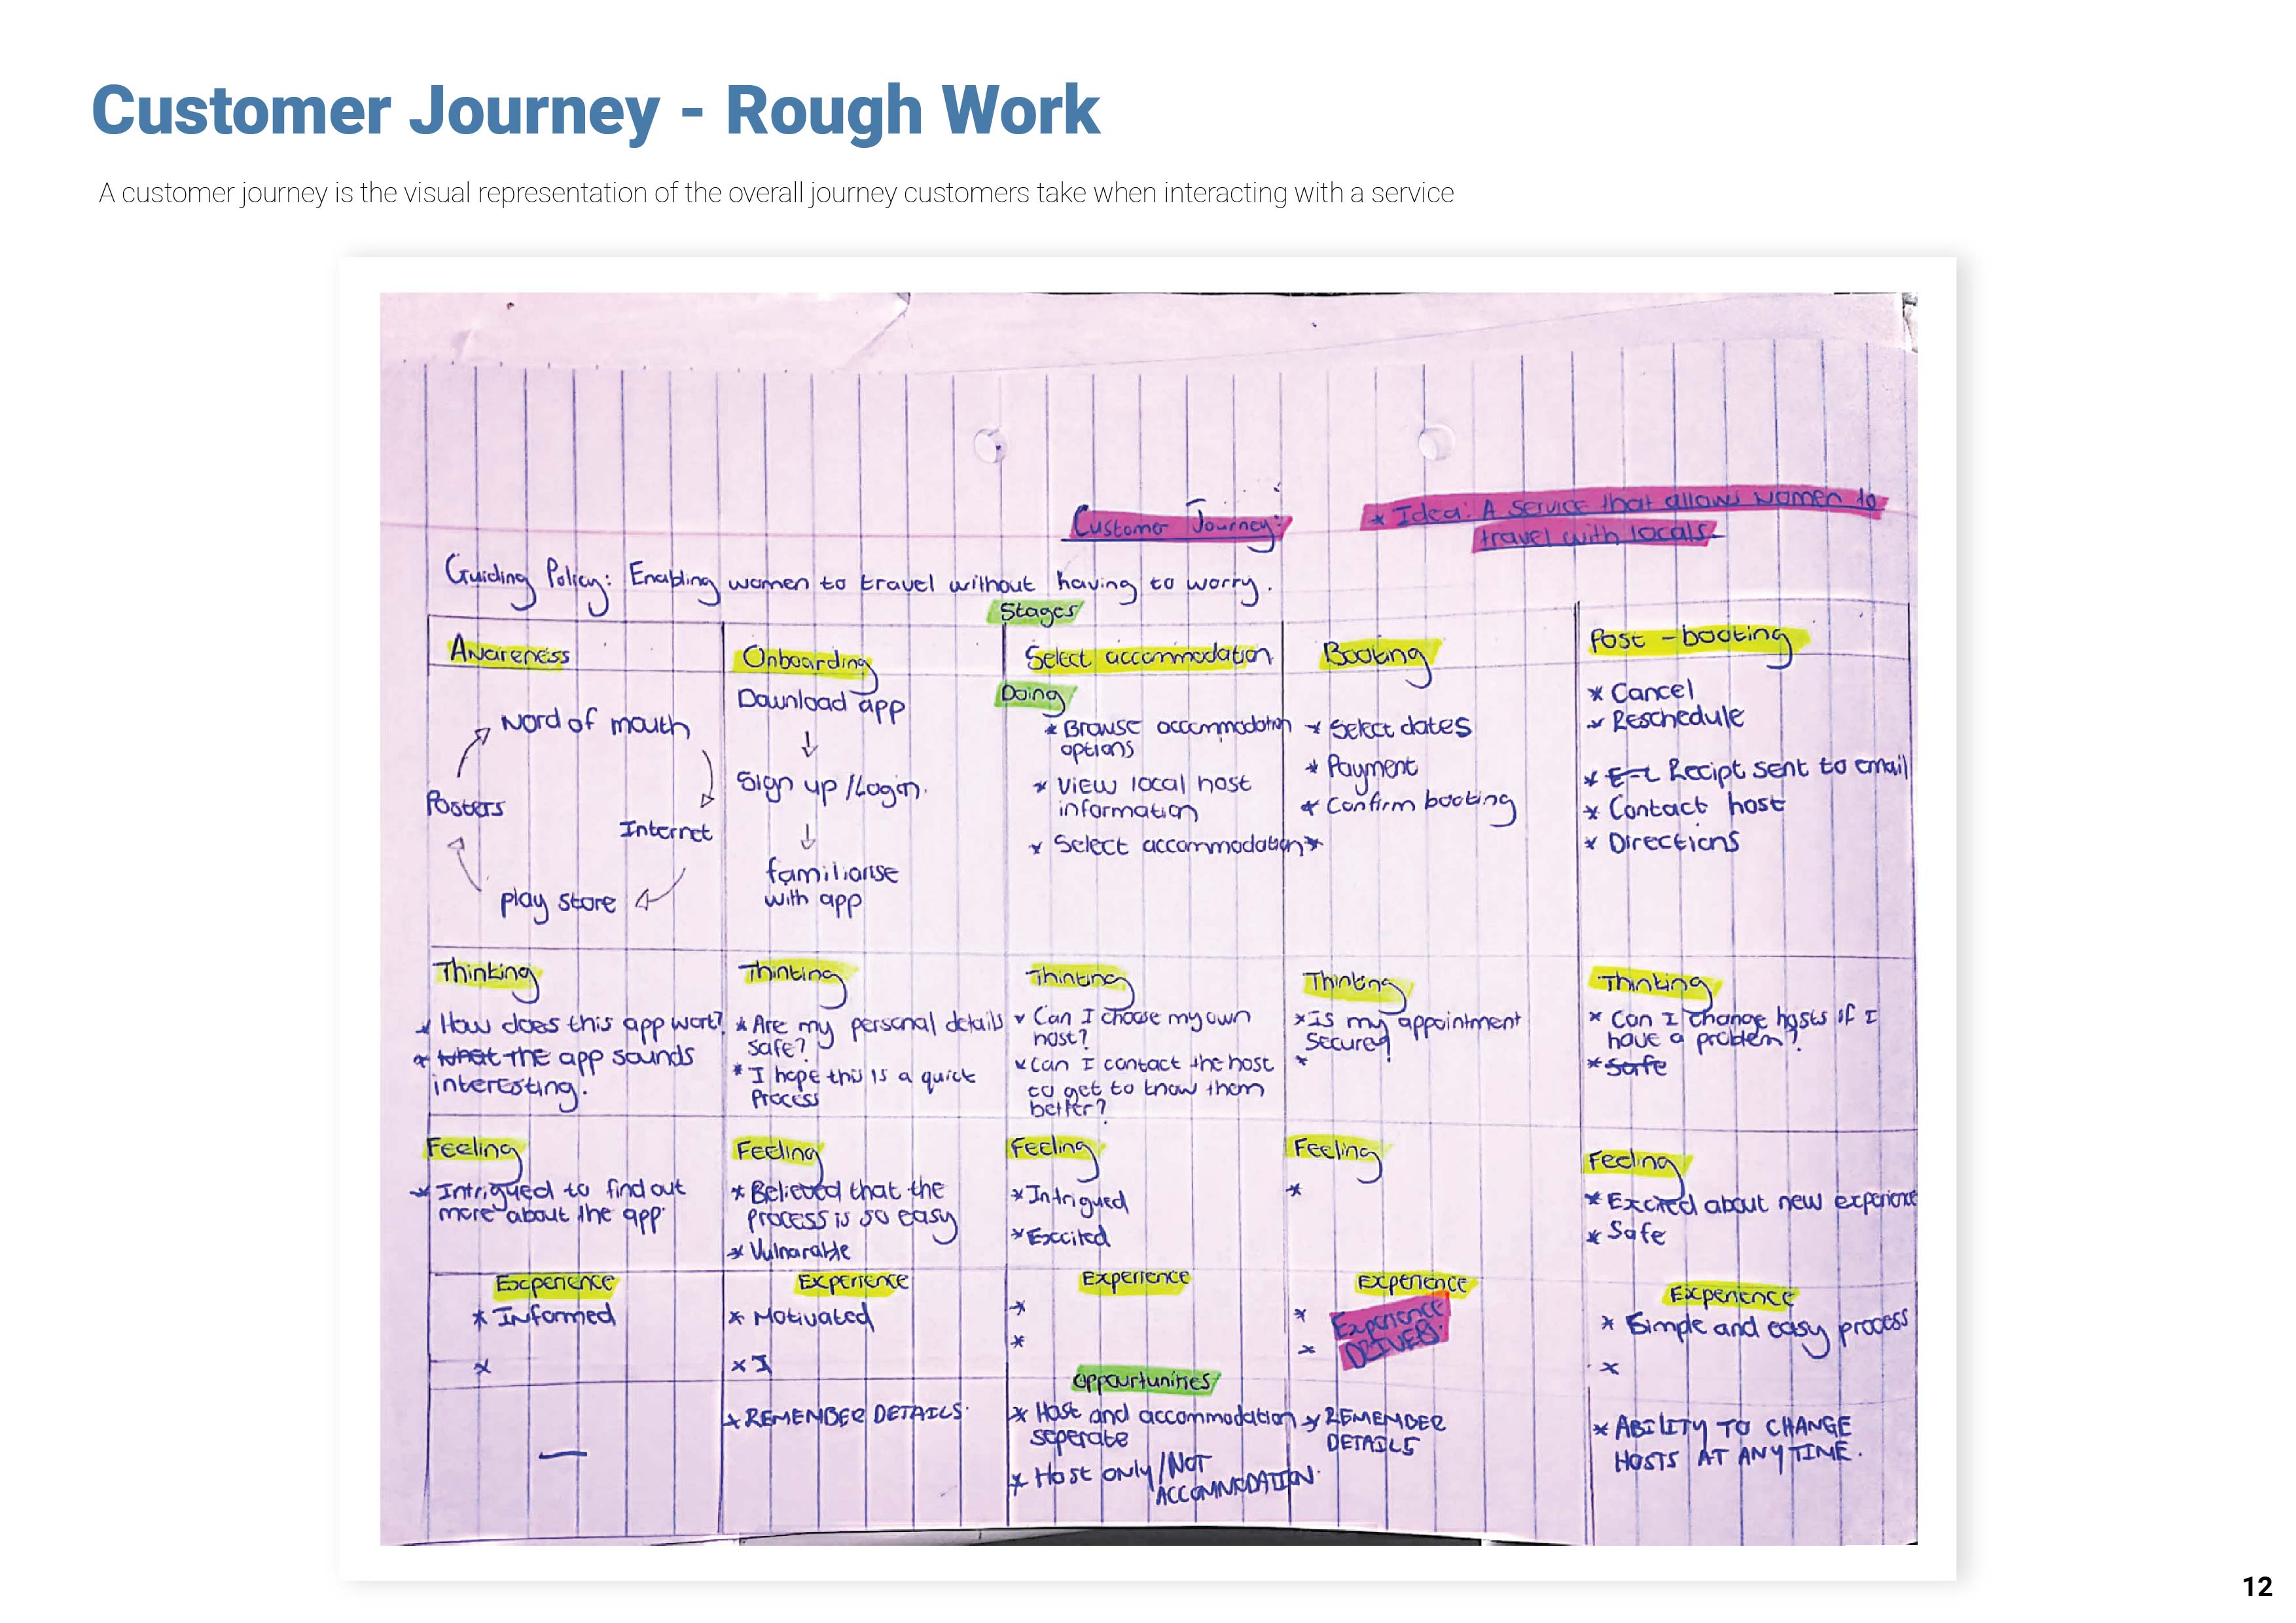 Customer Journey - Rough Work
A customer journey is the visual representation of the overall journey customers take when interacting with a service
Customer Journey:
* Idea: A service that allows women to
travel with locals.
Guiding Policy: Enabling women to travel without having to worry.
Stages
Awareness
Word of mouth
Internet
play store
Posters
Onboarding
Download app
↓
Sign up / Login.
↓
familiarise
with app
Select accommodation
Doing
* Browse accommodation
options
* View local host
information
* Select accommodation
Booking
* Select dates
* Payment
* Confirm booking
*
Post - booking
* Cancel
* Reschedule
* Recipt sent to email
* Contact host
* Directions
Thinking
* How does this app work?
* What The app sounds
interesting.
Thinking
* Are my personal details
safe?
* I hope this is a quick
Process
Thinking
* Can I choose my own
host?
* Can I contact the host
to get to know them
better?
Thinking
* Is my appointment
secured?
*
Thinking
* Can I change hosts if I
have a problem?
* Safe
Feeling
* Intrigued to find out
more about the app.
Feeling
* Believed that the
process is so easy
* Vulnarable
Feeling
* Intrigued
* Excited
Feeling
*
Feeling
* Excited about new experience
* Safe
Experience
* Informed
*
Experience
* Motivated
* I
Experience
*
*
Experience
* Experience
* DRIVER.
Experience
* Simple and easy process
*
Oppourtunities
—
* REMEMBER DETAILS.
* Host and accommodation
seperate
* Host only / NOT
ACCOMMODATION.
* REMEMBER
DETAILS
* ABILITY TO CHANGE
HOSTS AT ANY TIME.
12